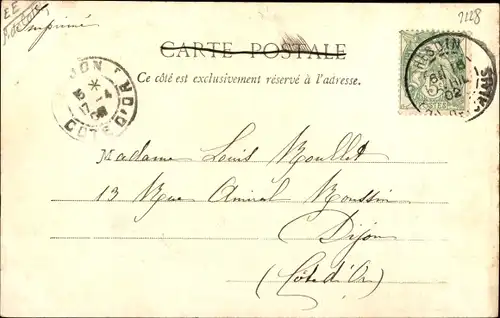 EE
Imprimé
7128
CARTE POSTALE
Ce côté est exclusivement réservé à l'adresse.
DIJON
CÔTE D'OR
Madame Louis Roullet
13 Rue Amiral Roussin
Dijon
(Côte d'Or)